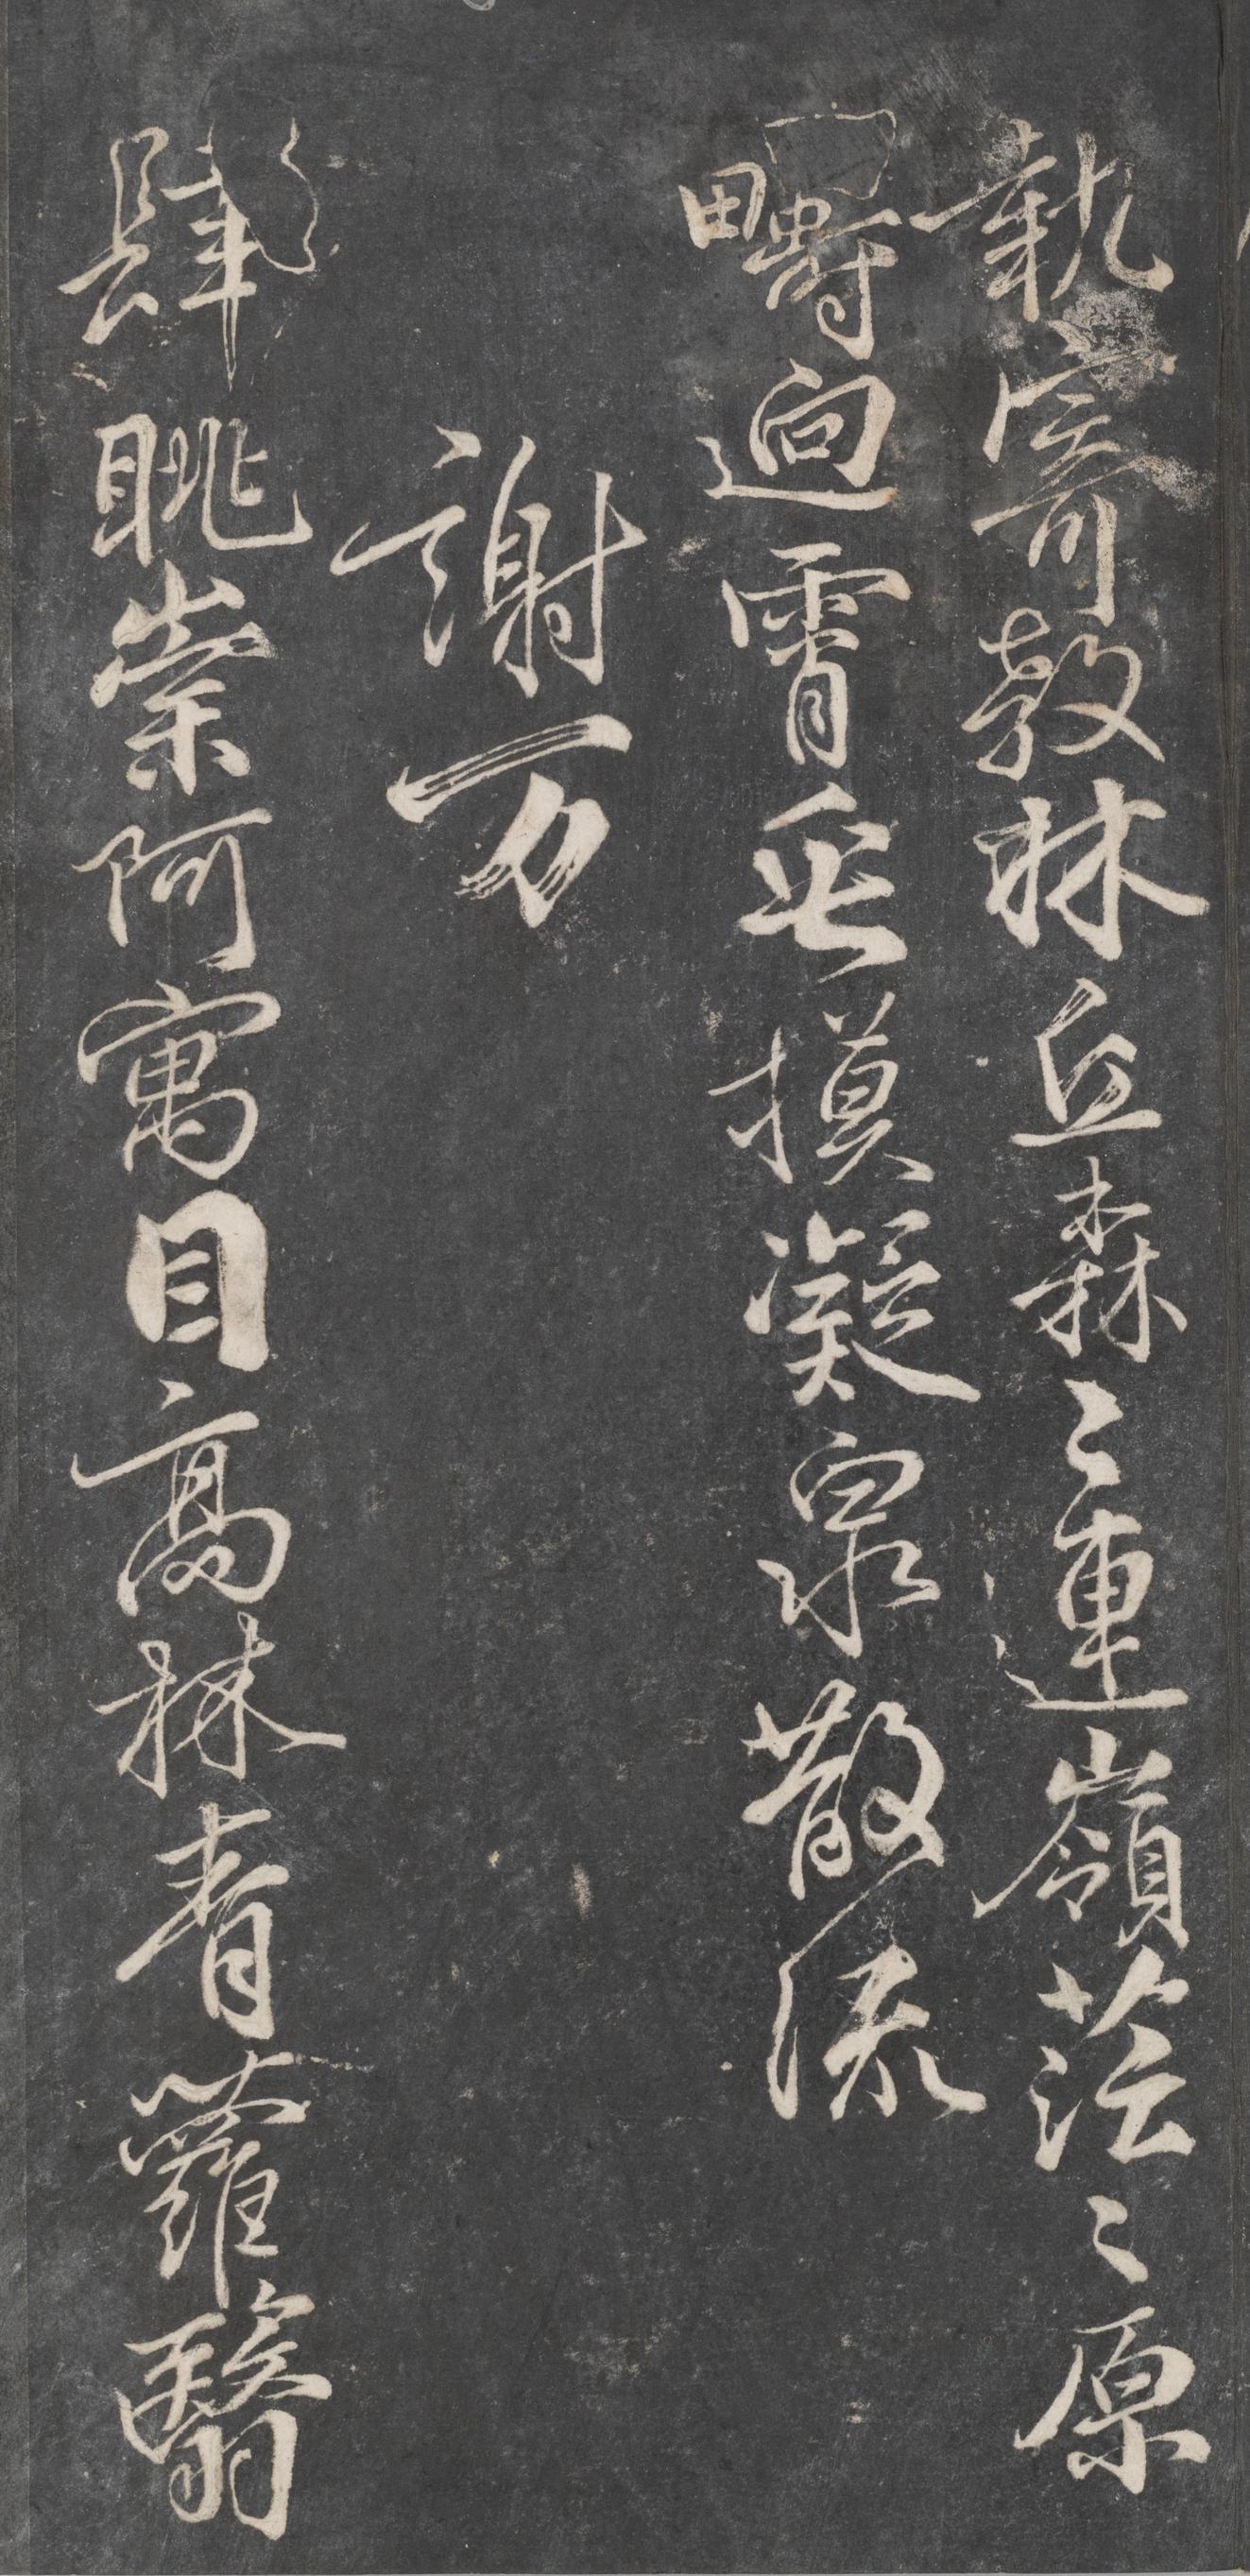 執寄敖林丘森〻連嶺茫〻原
疇逈霄垂摸凝泉散流
謝万
肆眺崇阿寓目高林青蘿翳